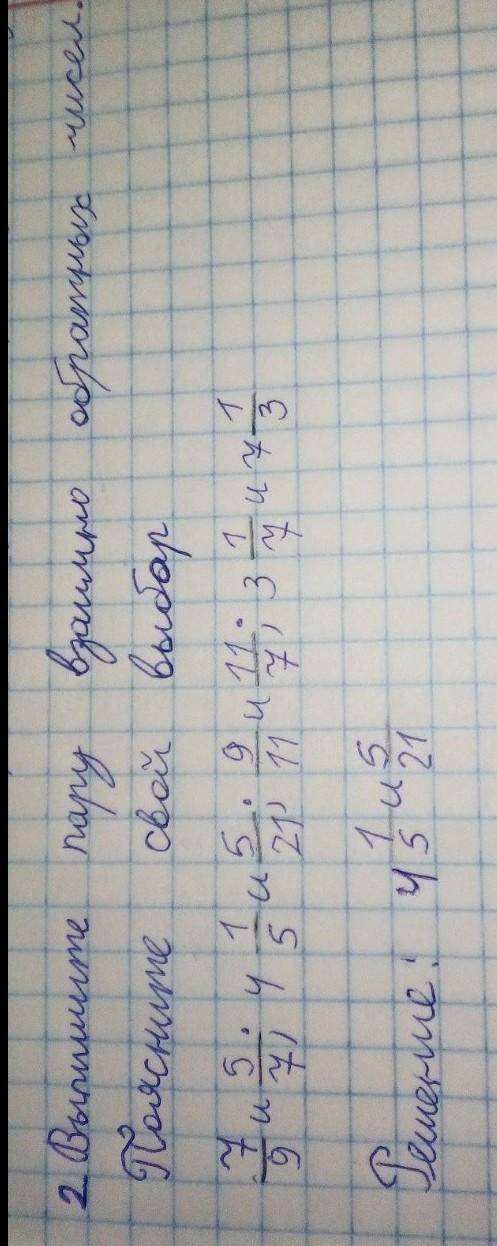 2. Выпишите пару взаимно обратных чисел.
Поясните свой выбор
7/9 и 5/7; 4 1/5 и 5/21; 9/11 и 11/7; 3 1/7 и 7 1/3
Решение: 4 1/5 и 5/21